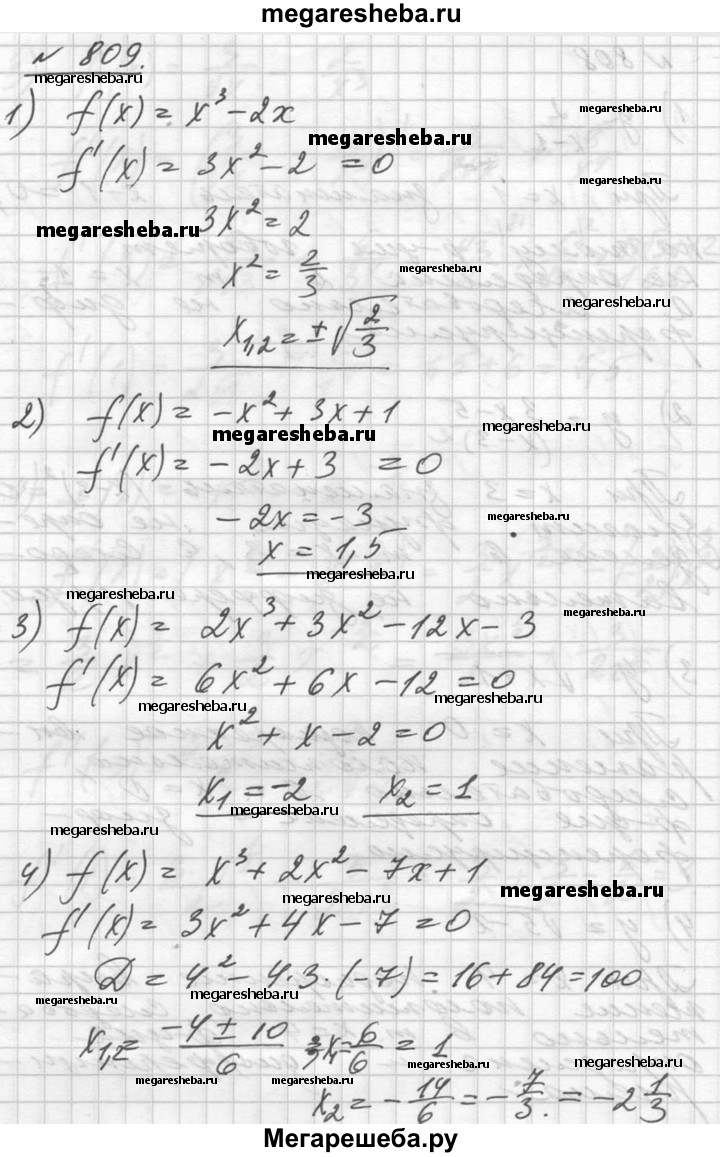 megaresheba.ru
№ 809.
megaresheba.ru
1) f(x) = x³ - 2x
megaresheba.ru
megaresheba.ru
f'(x) = 3x² - 2 = 0
3x² = 2
megaresheba.ru
x² = 2/3
megaresheba.ru
megaresheba.ru
x₁,₂ = ±√(2/3)
2) f(x) = -x² + 3x + 1
megaresheba.ru
megaresheba.ru
f'(x) = -2x + 3 = 0
-2x = -3
megaresheba.ru
x = 1,5
megaresheba.ru
megaresheba.ru
megaresheba.ru
3) f(x) = 2x³ + 3x² - 12x - 3
f'(x) = 6x² + 6x - 12 = 0
megaresheba.ru
megaresheba.ru
x² + x - 2 = 0
x₁ = -2 x₂ = 1
megaresheba.ru
megaresheba.ru
4) f(x) = x³ + 2x² - 7x + 1
megaresheba.ru
megaresheba.ru
f'(x) = 3x² + 4x - 7 = 0
D = 4² - 4·3·(-7) = 16 + 84 = 100
megaresheba.ru
megaresheba.ru
x₁,₂ = (-4 ± 10)/6 x₁ = 6/6 = 1
megaresheba.ru
megaresheba.ru
megaresheba.ru
megaresheba.ru
x₂ = -14/6 = -7/3. = -2 1/3
Мегарешеба.ру